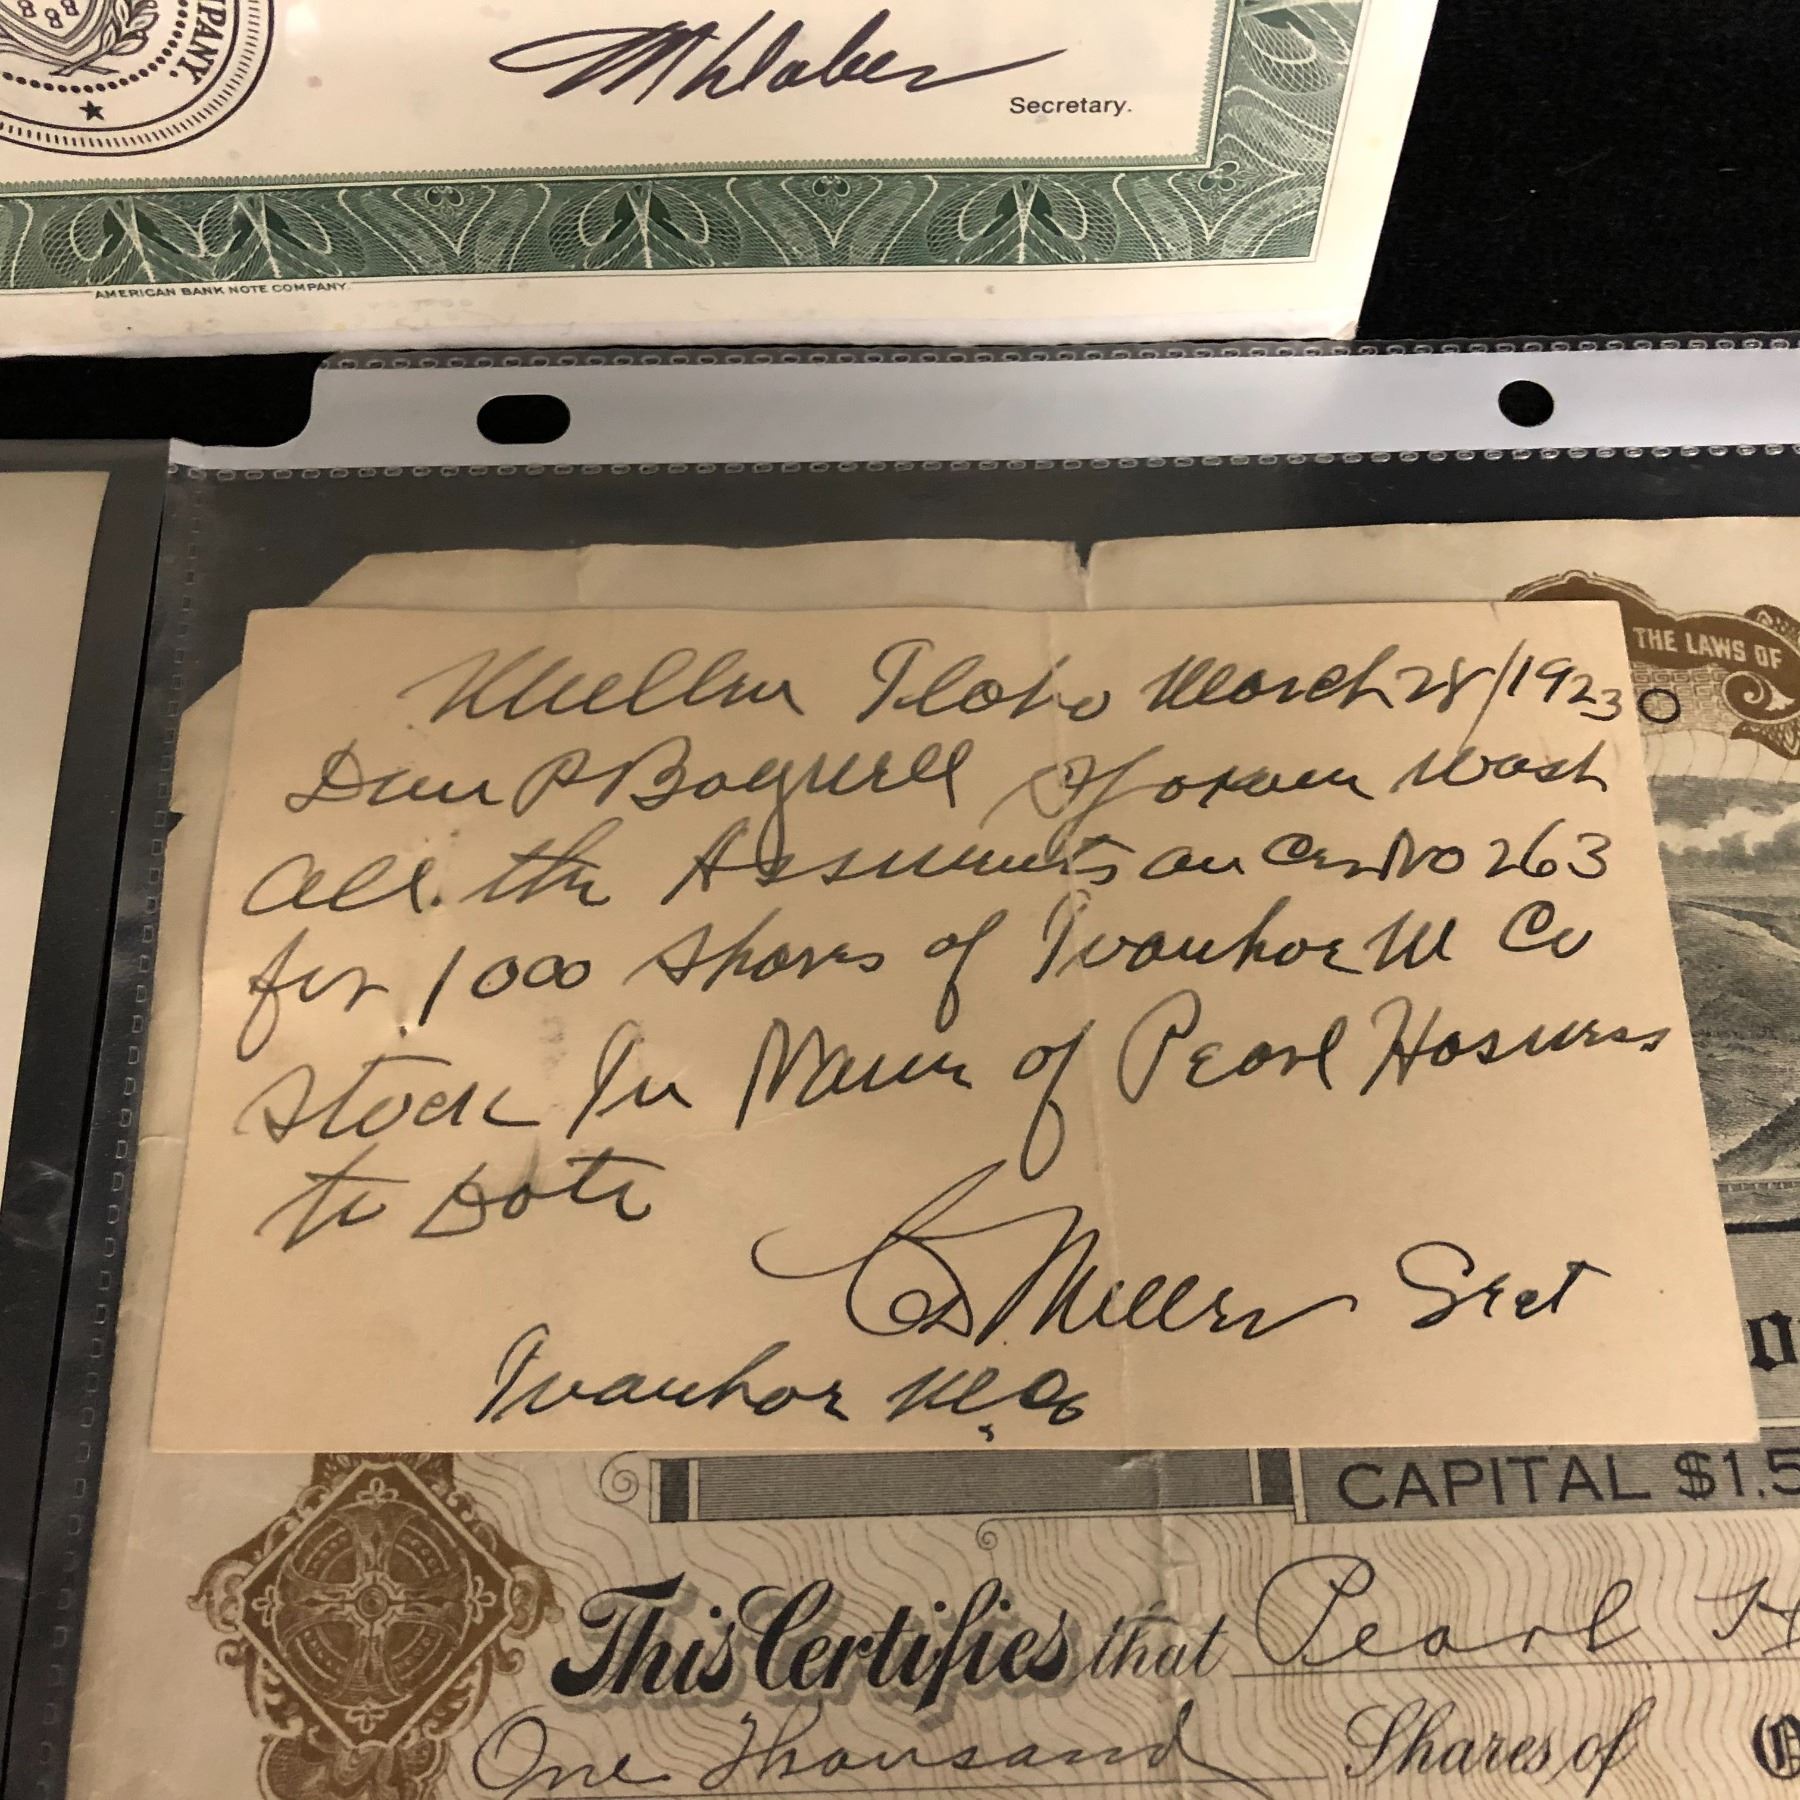 PANY.
Secretary.
AMERICAN BANK NOTE COMPANY.
THE LAWS OF
Mullan Idaho March 28/1923
P Bagwell Wash
all. the Assments on Cer No 263
for 1000 Shares of Ivanhoe M Co
Stock In Name of Pearl
to Date
Miller Sect
Ivanhoe M. Co
CAPITAL $1.5
This Certifies that Pearl H
One Thousand Shares of